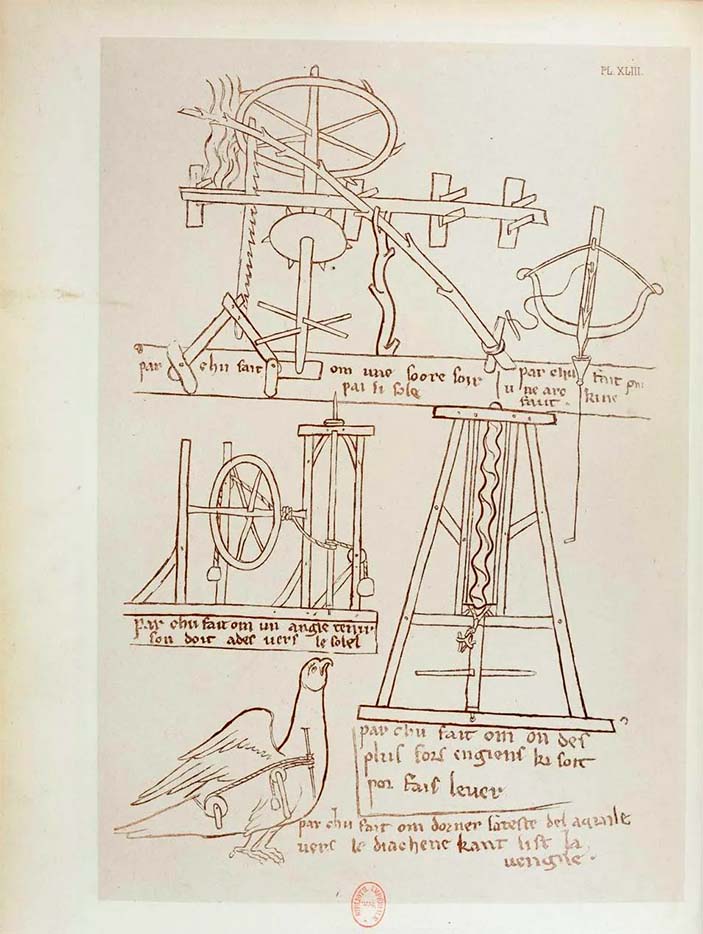 PL. XLIII.
par chu fait om une soore soir
par li sole
par chu fait om
u ne arc kine
faut.
par chu fait om un angle tenir
son doit ades vers le solel
par chu fait om on des
plus fors engiens ki soit
por fais lever
par chu fait om dorner la teste del aquile
vers le diachene kant list la
vengile.